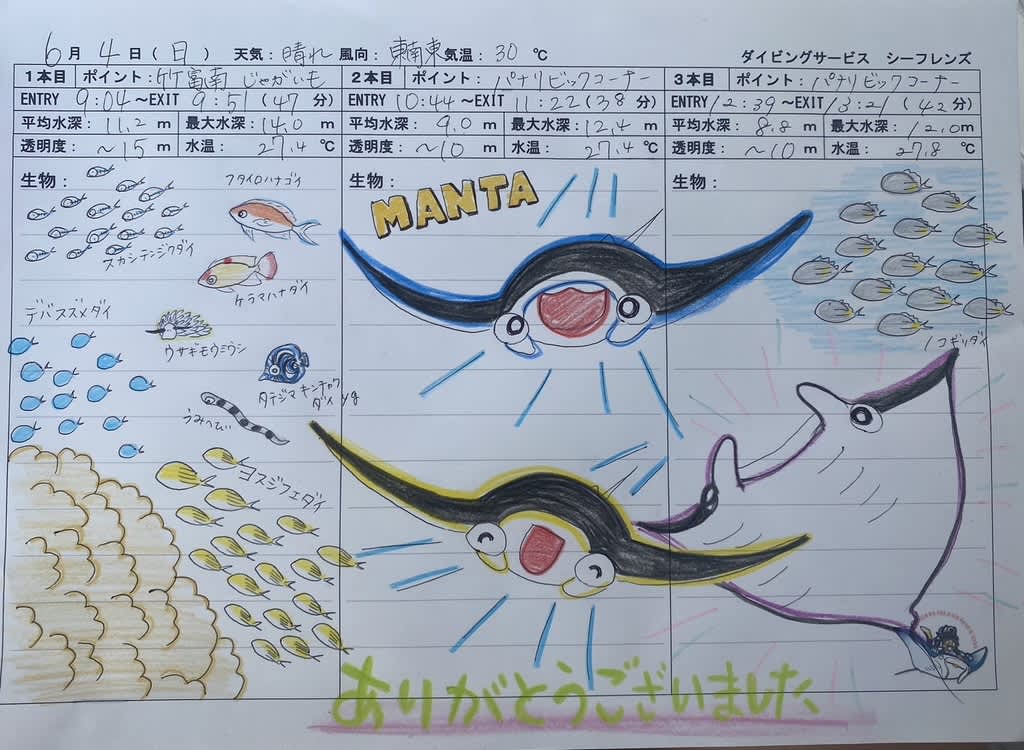 6月 4日(日) 天気:晴れ 風向:東南東 気温:30 ℃
ダイビングサービス シーフレンズ
1本目 ポイント:竹富南 じゃがいも
ENTRY 9:04 ～EXIT 9:51 (47 分)
平均水深:11.2 m 最大水深:14.0 m
透明度:～15 m 水温:27.4 ℃
生物:
フタイロハナゴイ
スカシテンジクダイ
ケラマハナダイ
デバスズメダイ
ウサギモウミウシ
タテジマキンチャク
ダイ yg
うみへび
ヨスジフエダイ
2本目 ポイント:パナリビックコーナー
ENTRY 10:44 ～EXIT 11:22 (38 分)
平均水深:9.0 m 最大水深:12.4 m
透明度:～10 m 水温:27.4 ℃
生物:
MANTA
3本目 ポイント:パナリビックコーナー
ENTRY 12:39 ～EXIT 13:21 (42 分)
平均水深:8.8 m 最大水深:12.0 m
透明度:～10 m 水温:27.8 ℃
生物:
ノコギリダイ
ありがとうございました